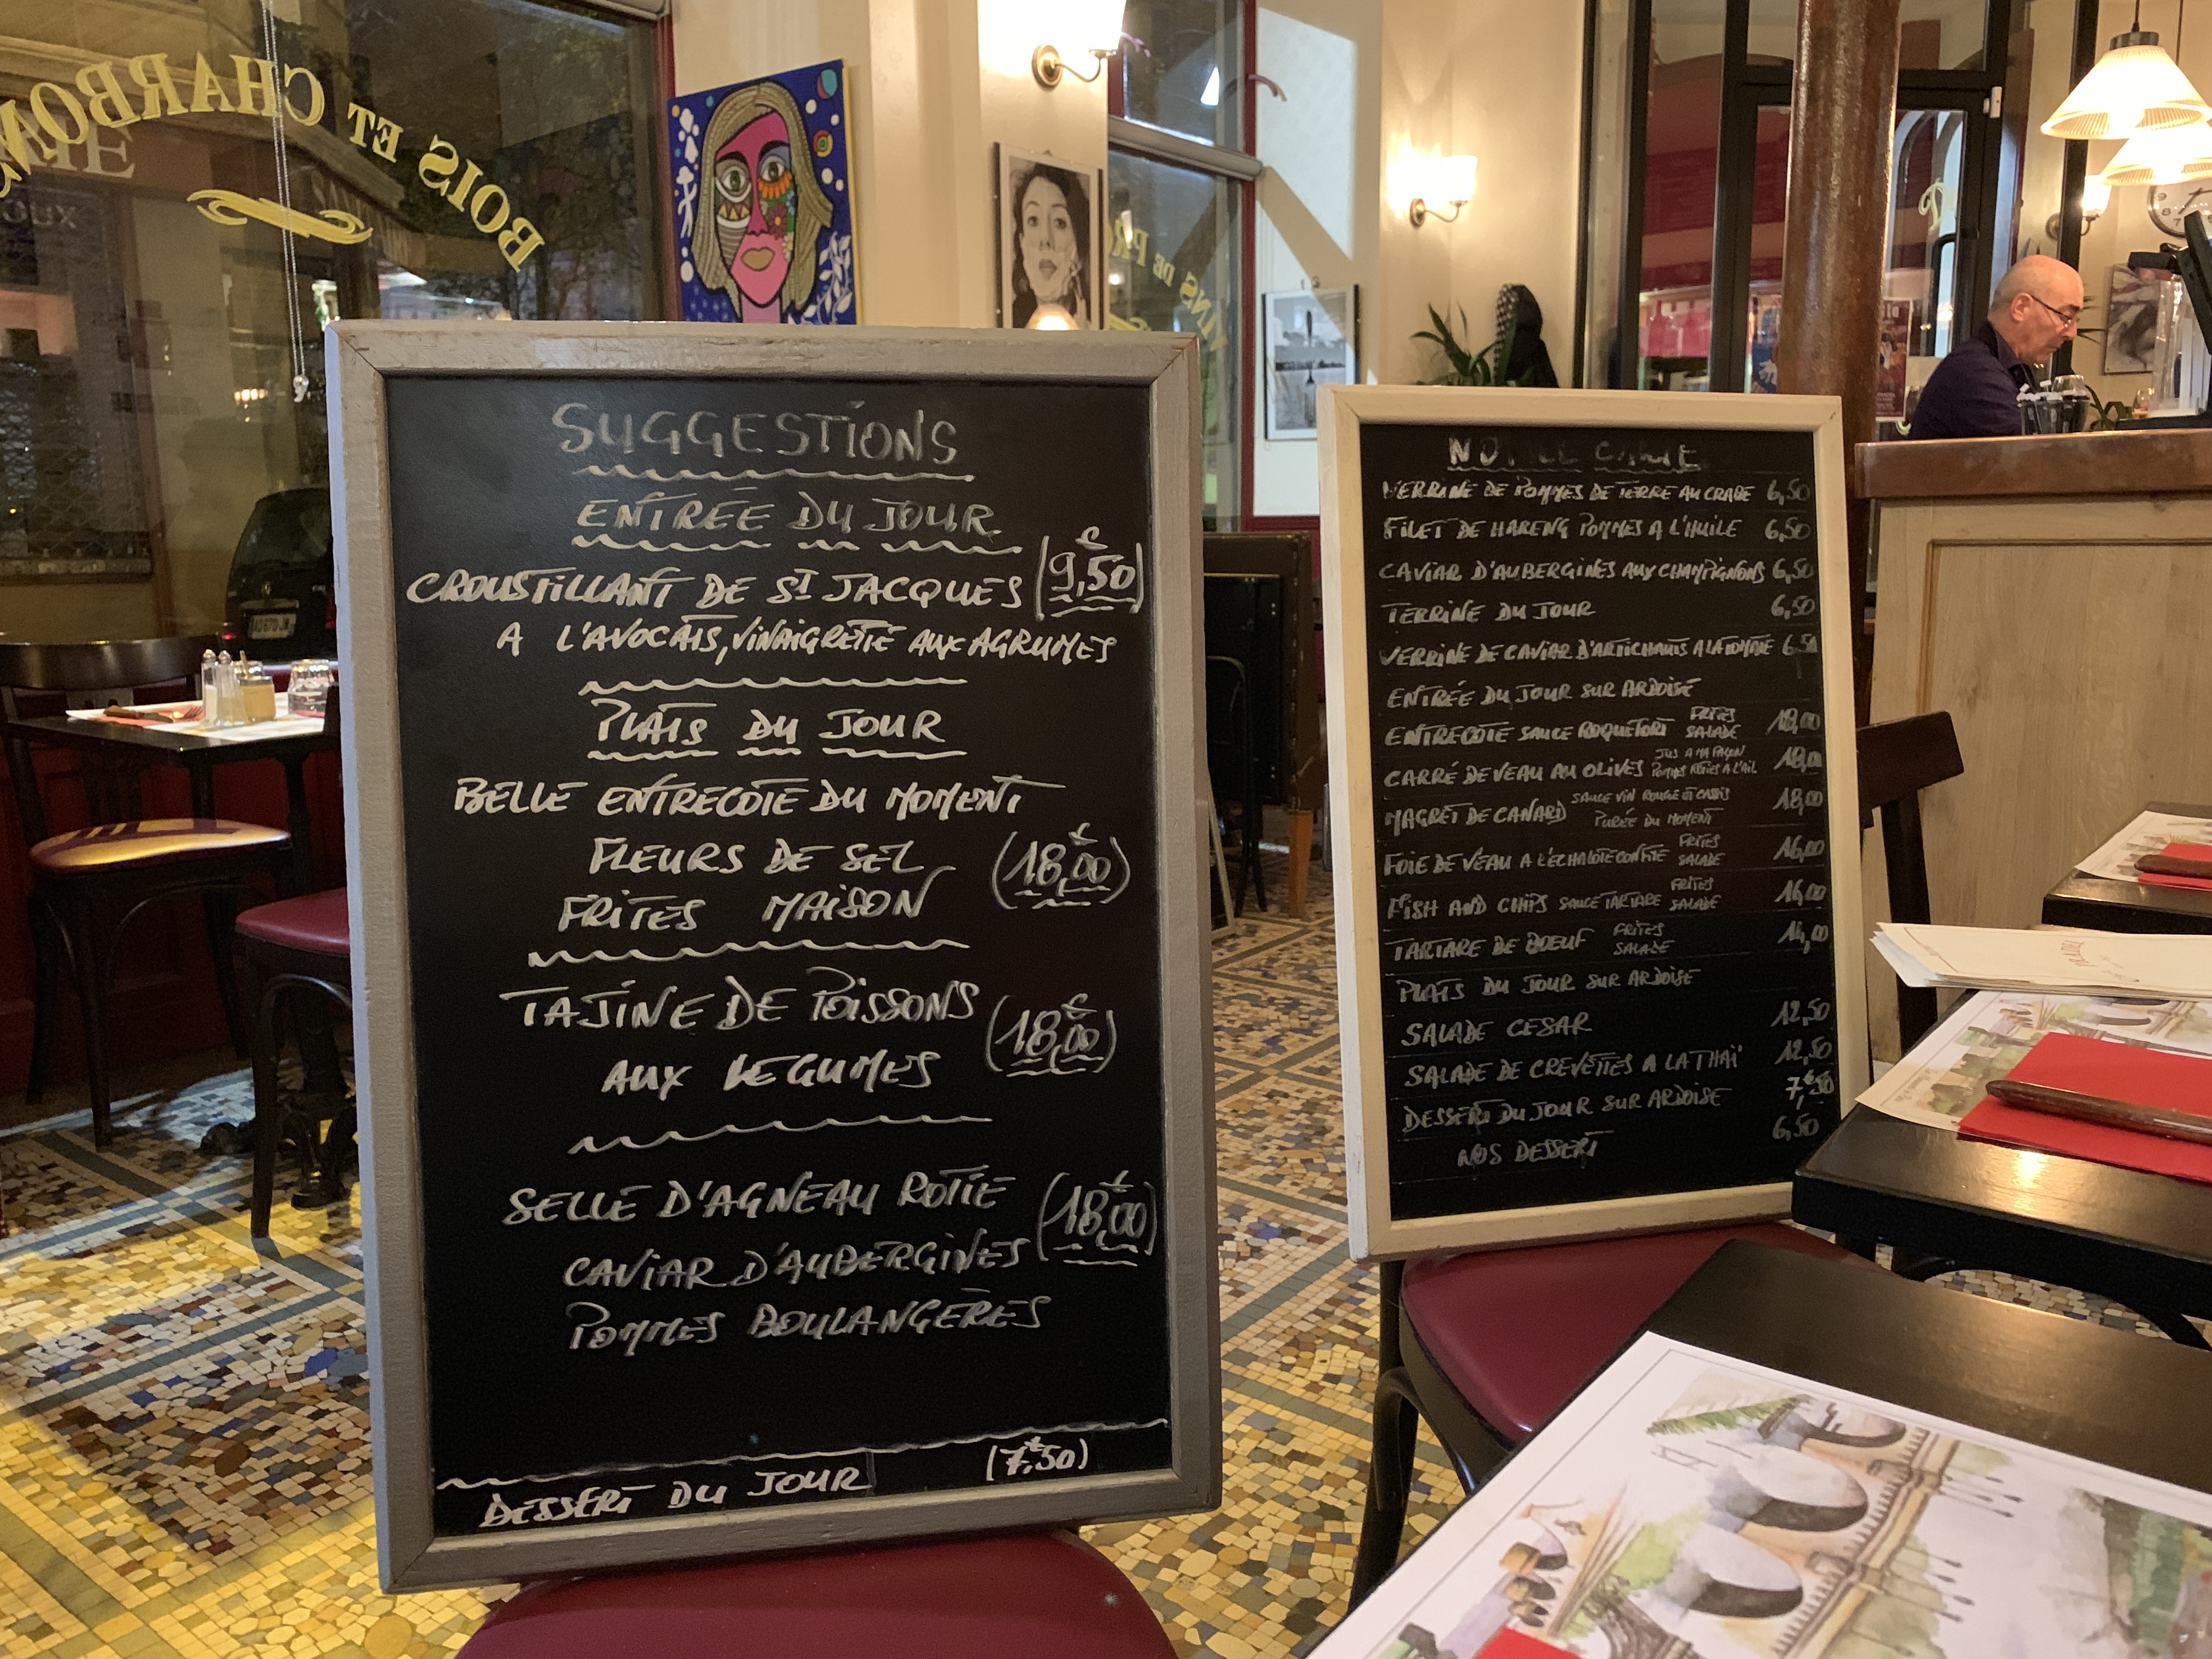 BOIS ET CHARBONS
VINS DE PRO
SUGGESTIONS
ENTRÉE DU JOUR
CROUSTILLANT DE ST JACQUES (9,€50)
A L'AVOCATS, VINAIGRETTE AUX AGRUMES
PLATS DU JOUR
BELLE ENTRECOTE DU MOMENT
FLEURS DE SEL (18,€00)
FRITES MAISON
TAJINE DE POISSONS
AUX LEGUMES (18,€00)
SELLE D'AGNEAU ROTIE
CAVIAR D'AUBERGINES (18,€00)
POMMES BOULANGÈRES
DESSERT DU JOUR (7,€50)
VERRINE DE POMMES DE TERRE AU CRABE 6,50
FILET DE HARENG POMMES A L'HUILE 6,50
CAVIAR D'AUBERGINES AUX CHAMPIGNONS 6,50
TERRINE DU JOUR 6,50
VERRINE DE CAVIAR D'ARTICHAUTS A LA TOMATE 6,50
ENTRÉE DU JOUR SUR ARDOISE
ENTRECOTE SAUCE ROQUEFORT FRITES SALADE 18,00
CARRÉ DE VEAU AU OLIVES JUS A MA FAÇON POMMES RÔTIES A L'AIL 18,00
MAGRET DE CANARD SAUCE VIN ROUGE ET CASSIS PURÉE DU MOMENT 18,00
FOIE DE VEAU A L'ÉCHALOTE CONFITE FRITES SALADE 16,00
FISH AND CHIPS SAUCE TARTARE FRITES SALADE 14,00
TARTARE DE BOEUF FRITES SALADE 14,00
PLATS DU JOUR SUR ARDOISE
SALADE CESAR 12,50
SALADE DE CREVETTES A LA THAÏ 12,50
DESSERT DU JOUR SUR ARDOISE 7,€50
NOS DESSERT 6,50